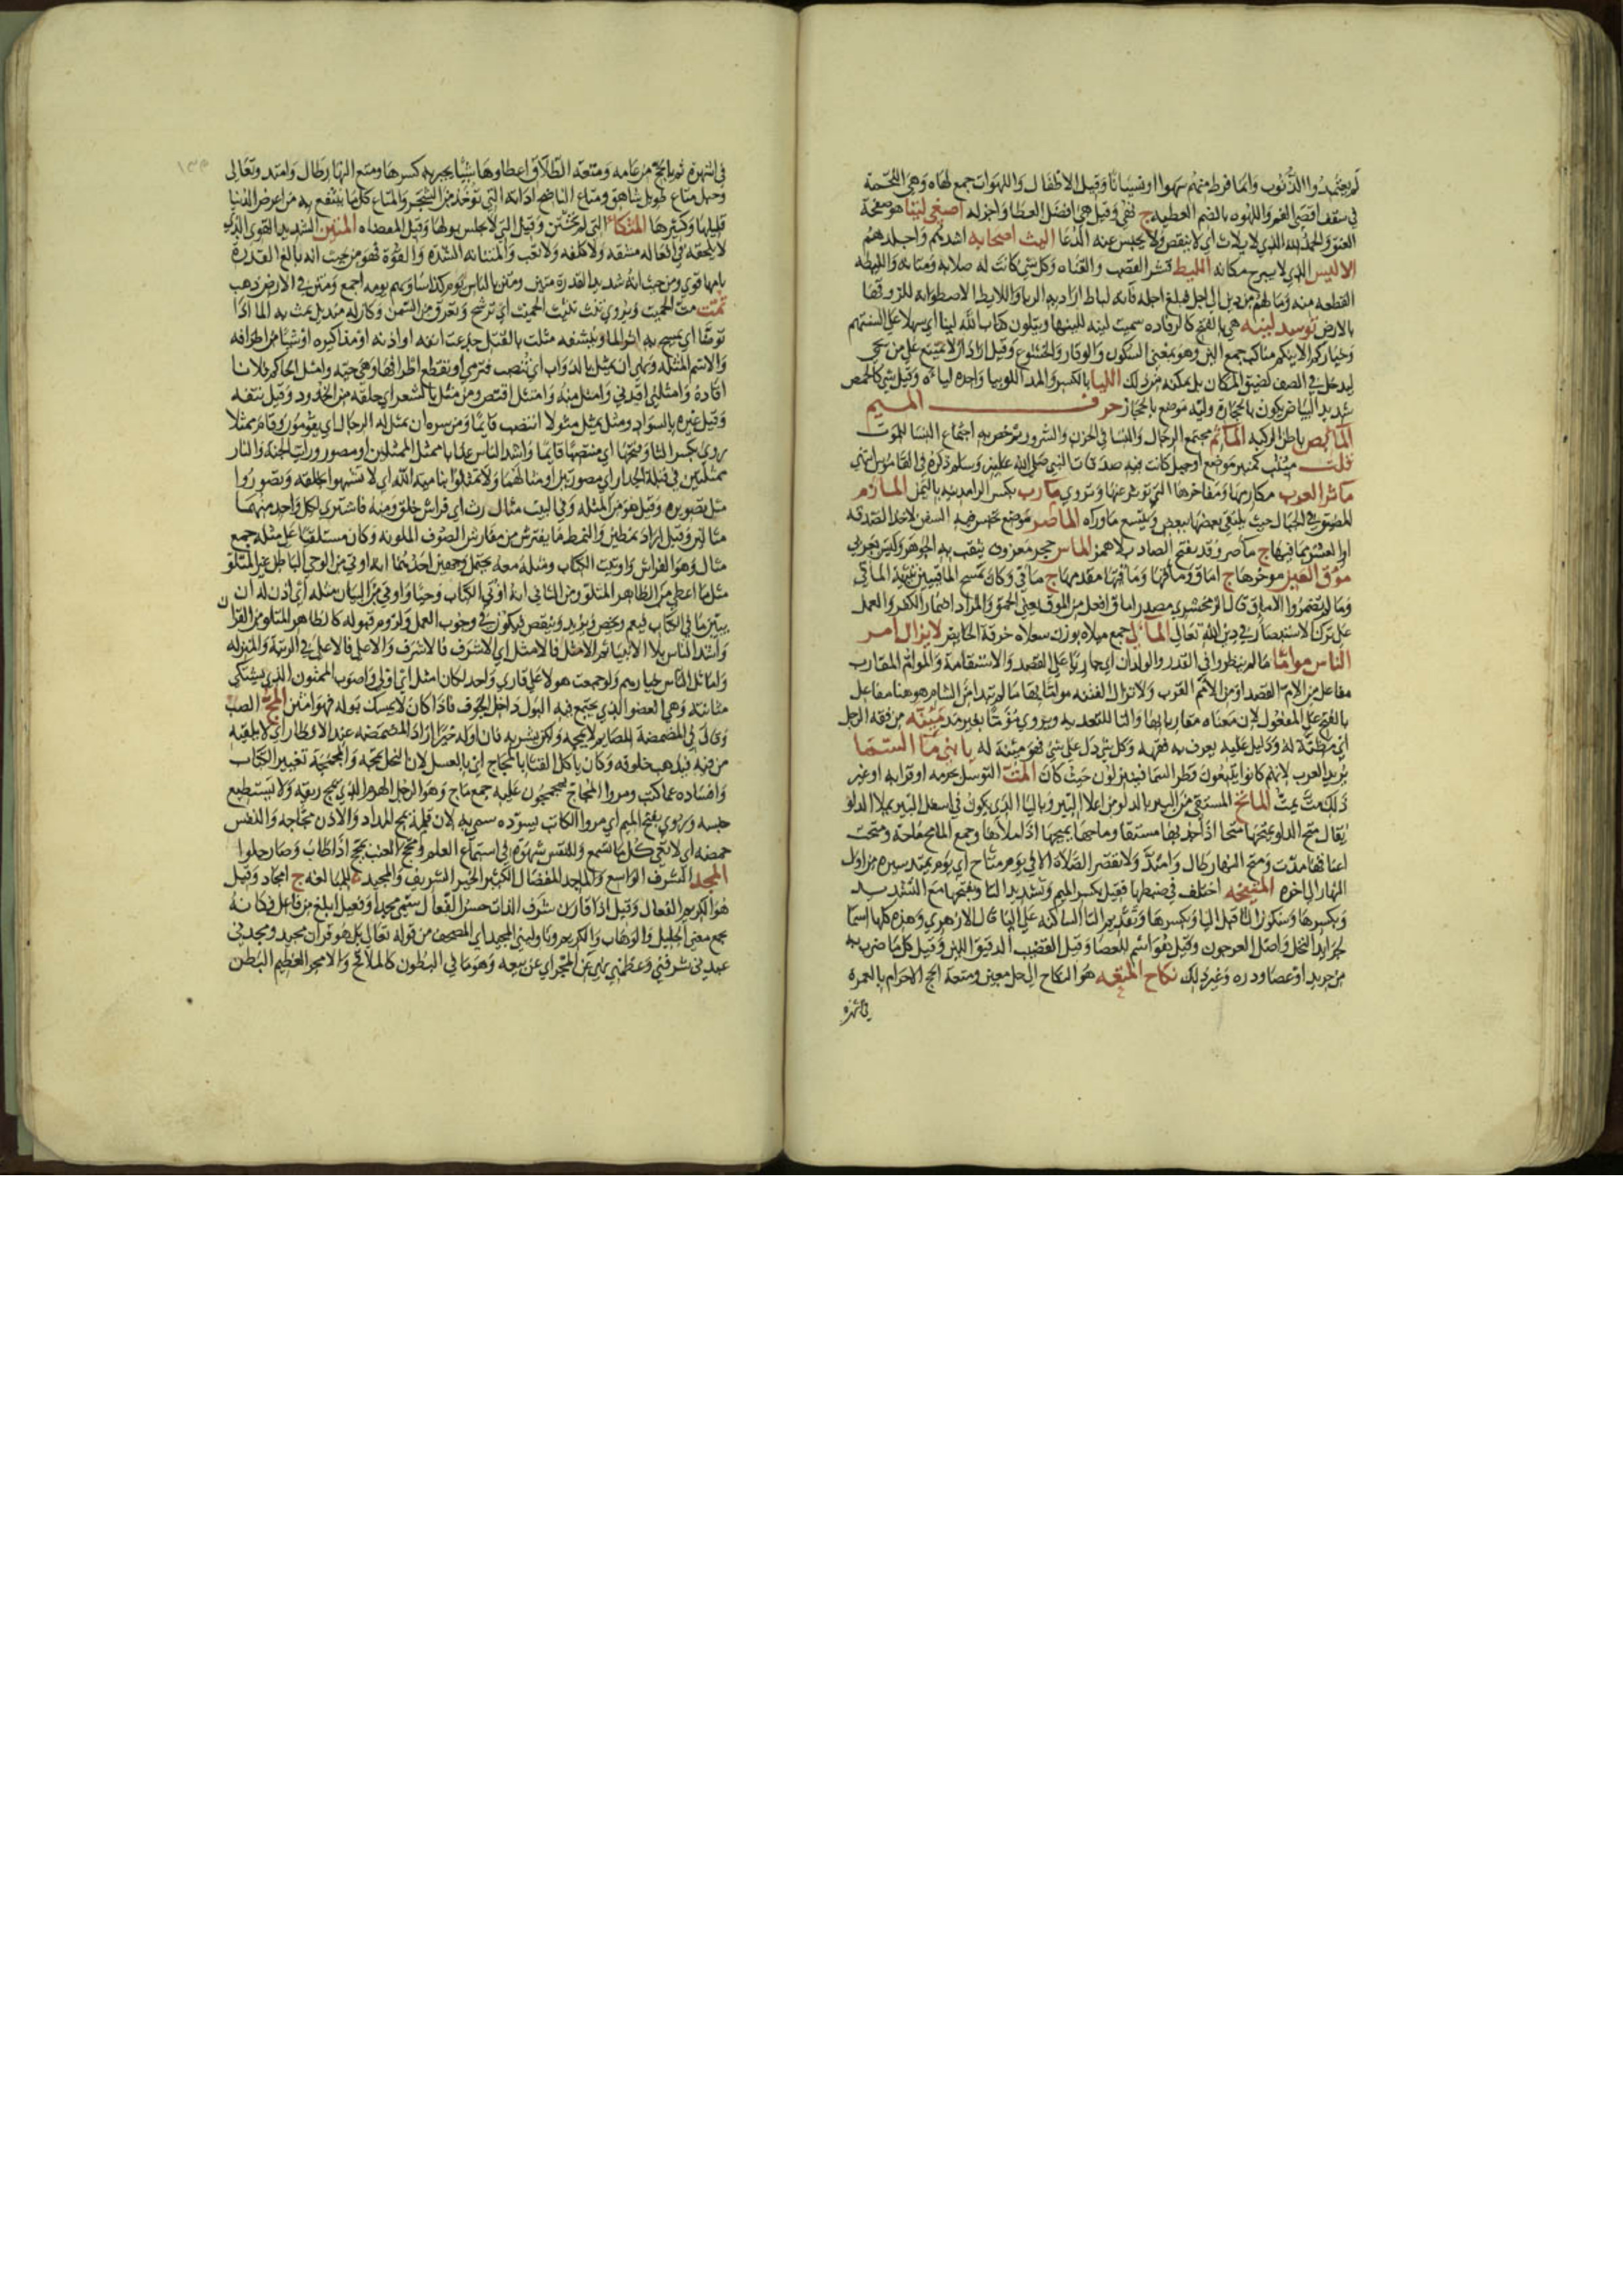 لم يعتمدوا الذنوب وانما فرط منهم سهوا او نسيانا وقيل الاطفال واللهوات جمع لهاه وهي اللحمة
في سقف اقصى الفم واللهوه بالضم العطيه ج لهي وقيل هي افضل العطا واجزله اصغى ليتا هو صفحة
العنق والحمد لله الذي لا يلات اي لا ينقص ولا يحبس عنه الدعا اليث اصحابه اشدهم واجلدهم
الاليس الذي لا يبرح مكانه الليط قشر القصب والقناه وكل شي كانت له صلابه ومتانه والليطه
القطعه منه وما لهم من دين الى اجل فبلغ اجله فانه لباط اراد به الربا واللايط الاسطوانه للزوقها
بالارض توسد لينه هي بالفتح كالرفاده سميت لينه للينها ويتلون كتاب الله لينا اي سهلا على السنتهم
وخياركم الاينكم مناكب جمع الين وهو بمعنى السكون والوقار والخشوع وقيل اراد ان لا يمتنع على من يجي
ليدخل في الصف لضيق المكان بل يمكنه من ذلك الليا بالكسر والمد اللوبيا واحده لياه وقيل شي كالحمص
شديد البياض يكون بالحجازة وليه موضع بالحجاز حرف الميم
المابض باطن الركبه الماتم مجتمع الرجال والنسا في الحزن والسرور ثم خص به اجتماع النسا للموت
قلت ميثب كمنبر موضع او جبل كانت فيه صدقات النبي صلى الله عليه وسلم ذكره في القاموس انتهى
ماثر العرب مكارمها ومفاخرها التي توثر عنها وتروى مارب بكسر الرا مدينه باليمن المازم
المضيق في الجبال حيث يلتقي بعضها ببعض ويتسع ماوراه الماصر موضع تحبس فيه السفن لاخذ الصدقه
او العشر مما فيها ج ماصر وقد بفتح الصاد بلا همز الماس حجر معروف يثقب به الجوهر وليس بعربي
موق العين موخرها ج اماق وماقها وماقيها مقدمها ج ماقي وكان يمسح الماقيين تثنية الماقي
وما لم تضمروا الاماق قال الزمخشري مصدر اماق افعل من الموق بمعنى الحمق والمراد اضمار الكفر والعمل
على ترك الاستبصار في دين الله تعالى المالي جمع ميلاه بوزن سعلاه خرقة الحايض لا يزال امر
الناس مواما ما لم ينظروا في القدر والولدان اي جاريا على القصد والاستقامة والموائم المقارب
مفاعل من الام القصد او من الامم القرب ولا تزال الفتنه مواما بها ما لم تبدا من الشام هو هنا مفاعل
بالفتح على المفعول لان معناه مقاربا بها والبا للتعديه ويروى مؤما بغير مد مئنة من فقه الرجل
اي مظنة له ودليل عليه يعرف به فقهه وكل شي دل على شي فهو مئنة له يا بني ما السما
يريد العرب لانهم كانوا يتبعون قطر السما فينزلون حيث كان المت التوسل بحرمه او قرابه او غير
ذلك مت يمت الماتح المستقي من البير بالدلو من اعلا البير وباليا الذي يكون في اسفل البير يملا الدلو
يقال متح الدلو يمتحها متحا اذا جذبها مستقيا وماحها يميحها اذا ملاها وجمع الماتح متحة ومتحت
اعناقها مدت ومتح النهار طال وامتد ولا تقصر الصلاة الا في يوم متاح اي يوم يمتد سيره من اول
النهار الى اخره المتيخه اختلف في ضبطها فقيل بكسر الميم وتشديد التا وبفتحها مع التشديد
وبكسرها وسكون التا قبل اليا وبكسرها وتقديم اليا الساكنه على التا قال الازهري وهذه كلها اسما
لجرايد النخل واصل العرجون وقيل هو اسم للعصا وقيل القضيب الدقيق اللين وقيل كل ما ضرب به
من جريد او عصا ودره وغير ذلك نكاح المتعه هو النكاح الى اجل معين ومتعة الحج الاحرام بالعمره
في اشهره
في اشهره ثم بالحج من عامه ومتعة الطلاق اعطاوها شيئا يجبر به كسرها ومتع النهار طال وامتد وتعالى
وجبل متاع طويل شاهق ومتاع الناضح اداته التي توخذ من الشجر والمتاع كل ما ينتفع به من عرض الدنيا
قليلها وكثيرها المتكا التي لم تختن وقيل التي لا تحبس بولها وقيل المفضاه المتين الشديد القوي الذي
لا يلحقه في افعاله مشقه ولا كلفه ولا تعب والمتانه الشده والقوة فهو من حيث انه بالغ القدرة
تامها قوي ومن حيث انه شديد القدرة متين ومتن بالناس يوم كذا سار بهم يومه اجمع ومتن في الارض ذهب
تمثت مث الحميت ويروى نث نثيث الحميت اي ترشح وتعرق من السمن وكان له منديل يمث به الما اذا
توضا اي يمسح به اثر الما وينشفه مثلت بالقتيل جدعت انفه او اذنه او مذاكيره او شيا من اطرافه
والاسم المثله ونهى ان يمثل بالدواب اي تنصب فترمى او تقطع اطرافها وهي حيه وامثل الحاكم فلانا
اقاده وامثلني اقدني وامتثل منه وامتثل اقتص ومن مثل بالشعر اي حلقه من الخدود وقيل نتفه
وقيل غيره بالسواد ومثل يمثل مثولا انتصب قايما ومن سره ان يمثل له الرجال اي يقومون وقام ممثلا
يروى بكسر الثا وفتحها اي منتصبا قايما واشد الناس عذابا ممثل الممثلين او مصور ورايت الجنة والنار
ممثلتين في قبلة الجدار اي مصورتين او مثالهما ولا تمثلوا بنامية الله اي لا تشبهوا بخلقه وتصوروا
مثل تصويره وقيل هو من المثله وفي البيت مثال رث اي فراش خلق ومنه فاشترى لكل واحد منهما
مثالين وقيل اراد نمطين والنمط ما يفترش من مفارش الصوف الملونه وكان مستلقيا على مثله جمع
مثال وهو الفراش واوتيت الكتاب ومثله معه يحتمل وجهين احدهما انه اوتي من الوحي الباطن غير المتلو
مثل ما اعطي من الظاهر المتلو ومن الثاني انه اوتي الكتاب وحيا واوتي من البيان مثله اي اذن له ان
يبين ما في الكتاب فيعم ويخص ويزيد وينقص فيكون في وجوب العمل ولزوم قبوله كالظاهر المتلو من القران
واشد الناس بلا الانبيا ثم الامثل فالامثل اي الاشرف فالاشرف والاعلى فالاعلى في الرتبة والمنزله
واماثل الناس خيارهم ولو جمعت هولا على قاري واحد لكان امثل اي اولى واصوب الممثون الذي يشتكي
مثانته وهي العضو الذي يجتمع فيه البول داخل الجوف فاذا كان لا يمسك بوله فهو امثن المج الصب
وقال في المضمضة للصايم لا يمجه ولكن يشربه فان اوله خيرا اراد المضمضه عند الافطار اي لا يلقيه
من فيه فيذهب خلوفه وكان ياكل القثا بالمجاج اي بالعسل لان النحل تمجه والمجمجة تغيير الكتاب
وافساده عما كتب ومروا المجاج يمجمجون عليه جمع ماج وهو الرجل الهرم الذي يمج ريقه ولا يستطيع
حبسه ويروى بفتح الميم اي مروا الكاتب يسوده سمي به لان قلمه يمج المداد والاذن مجاجه وللنفس
حمضه اي لا تعي كل ما تسمع وللنفس شهوة في استماع العلم ومجج العنب يمجج اذا طاب وصار حلوا
المجد الشرف الواسع والماجد المفضال الكثير الخير الشريف والمجيد للمبالغه ج امجاد وقيل
هو الكريم الفعال وقيل اذا قارن شرف الذات حسن الفعال سمي مجدا وفعيل ابلغ من فاعل فكانه
يجمع معنى الجليل والوهاب والكريم وناوليني المجيد اي المصحف من قوله تعالى بل هو قران مجيد ومجدني
عبدي شرفني وعظمني نهى عن المجر اي عن بيعه وهو ما في البطون كالملاقيح والامجر العظيم البطن